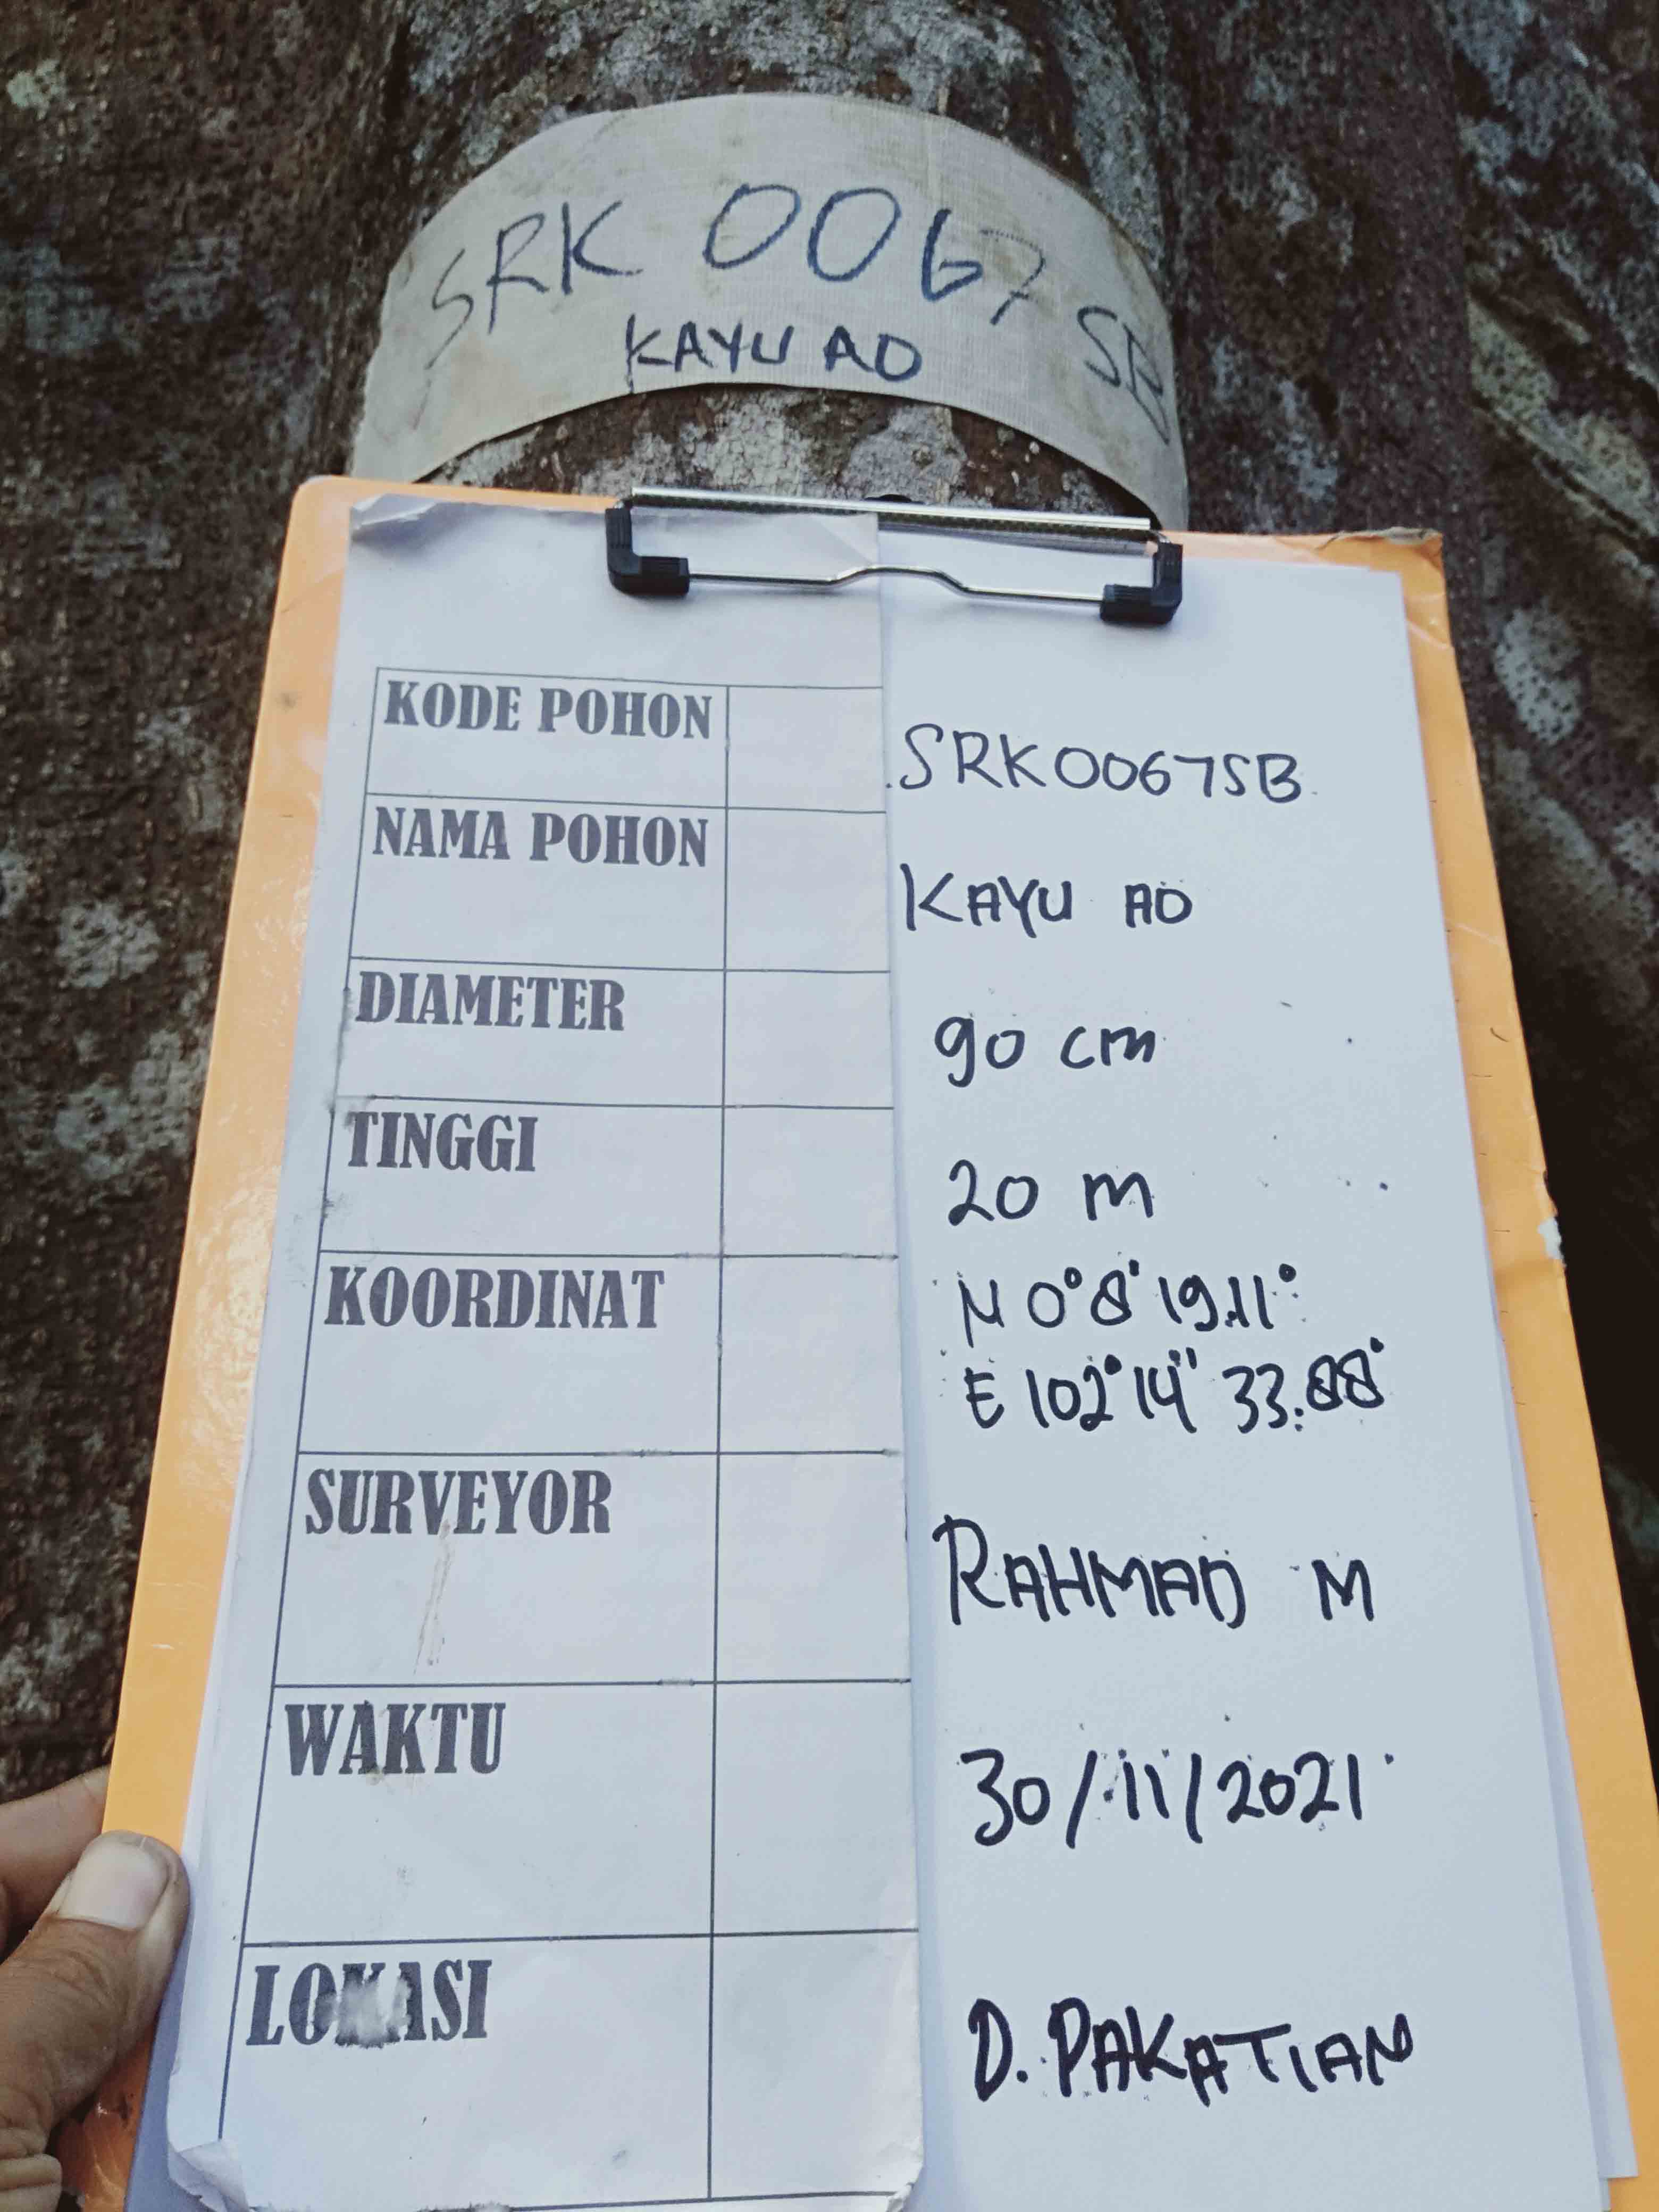 SRK 0067 SB
KAYU AO
KODE POHON SRK0067SB
NAMA POHON KAYU AO
DIAMETER 90 cm
TINGGI 20 m
KOORDINAT N 0°8' 19.11°
E 102°14" 33.88°
SURVEYOR RAHMAD M
WAKTU 30/11/2021
LOKASI D. PAKATIAN